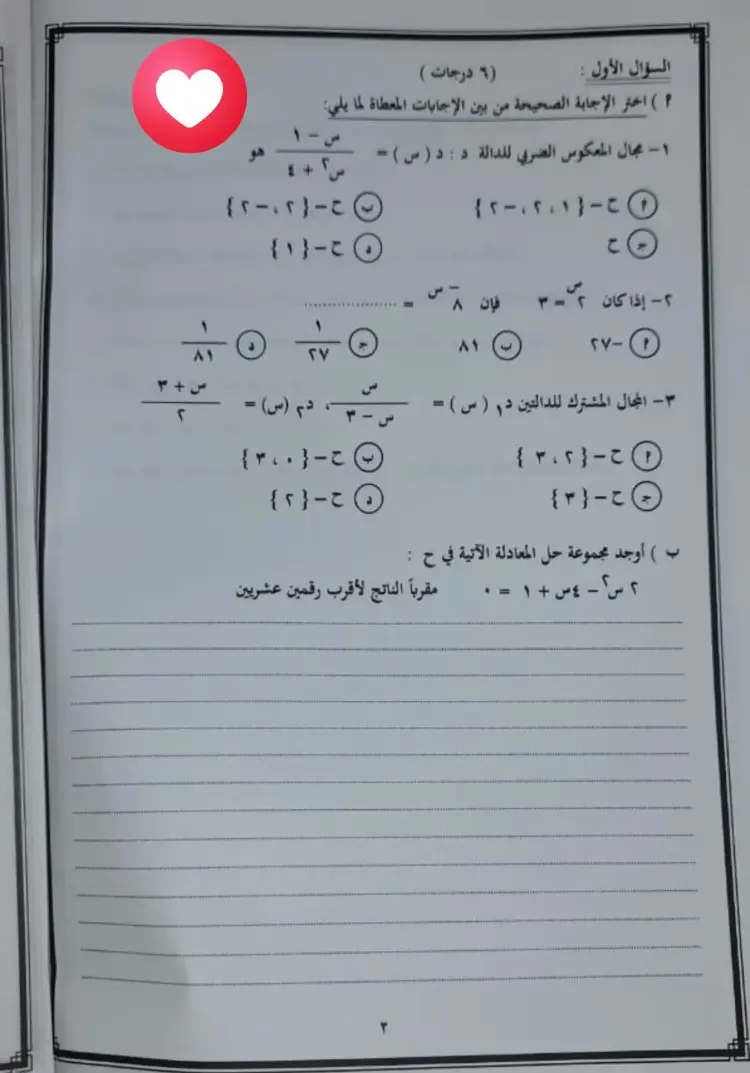 السؤال الأول : (٦ درجات)
أ ) اختر الإجابة الصحيحة من بين الإجابات المعطاة لما يلي:
١- مجال المعكوس الضربي للدالة د : د ( س ) = (س - ١) / (س² + ٤) هو
أ ح - { ١ ، ٢ ، -٢ } ب ح - { ٢ ، -٢ }
ج ح د ح - { ١ }
٢- إذا كان ٢^س = ٣ فإن ٨^-س = ....................
أ -٢٧ ب ٨١ ج ١/٢٧ د ١/٨١
٣- المجال المشترك للدالتين د₁ ( س ) = س / (س - ٣) ، د₂ (س) = (س + ٣) / ٢
أ ح - { ٢ ، ٣ } ب ح - { ٠ ، ٣ }
ج ح - { ٣ } د ح - { ٢ }
ب ) أوجد مجموعة حل المعادلة الآتية في ح :
٢ س² - ٤س + ١ = ٠ مقرباً الناتج لأقرب رقمين عشريين
٣